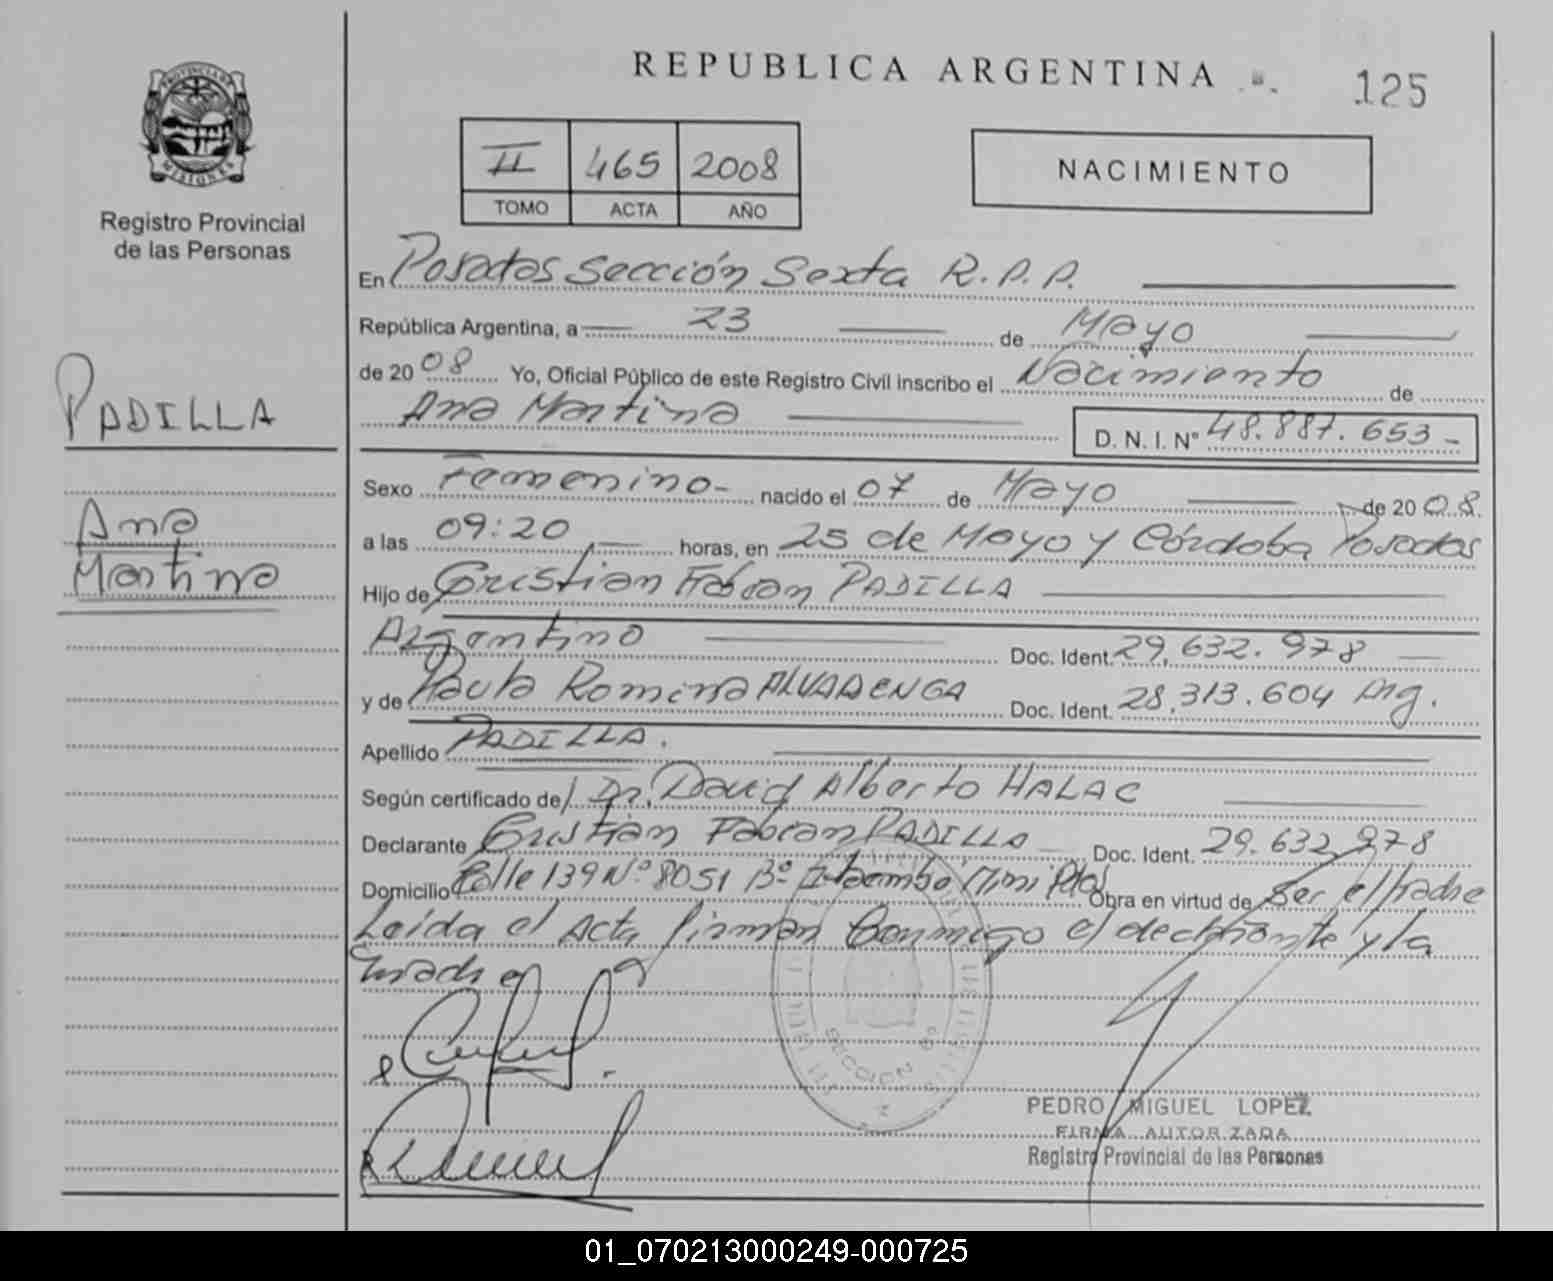 REPUBLICA ARGENTINA
125
PROVINCIA DE MISIONES
Registro Provincial
de las Personas
II 465 2008
TOMO ACTA AÑO
NACIMIENTO
En Posadas Sección Sexta R.P.P.
República Argentina, a 23 de Mayo
de 2008 Yo, Oficial Público de este Registro Civil inscribo el Nacimiento de
Ana Martina D. N. I. N° 48.887.653-
PADILLA
Ana
Martina
Sexo Femenino- nacido el 07 de Mayo de 2008.
a las 09:20 horas, en 25 de Mayo y Córdoba Posadas
Hijo de Cristian Fabian PADILLA
Argentino Doc. Ident. 29.632.978
y de Paula Romina ALVARENGA Doc. Ident. 28.313.604 Arg.
Apellido PADILLA.
Según certificado de Dr. David Alberto HALAC
Declarante Cristian Fabian PADILLA Doc. Ident. 29.632.978
Domicilio Calle 139 N° 8051 B° Itaembé Mini Pdas Obra en virtud de Ser el Padre
Leida el Acta firman Conmigo el declarante y la
madre
SECCION 6°
PEDRO MIGUEL LOPEZ
FIRMA AUTORIZADA
Registro Provincial de las Personas
01_070213000249-000725